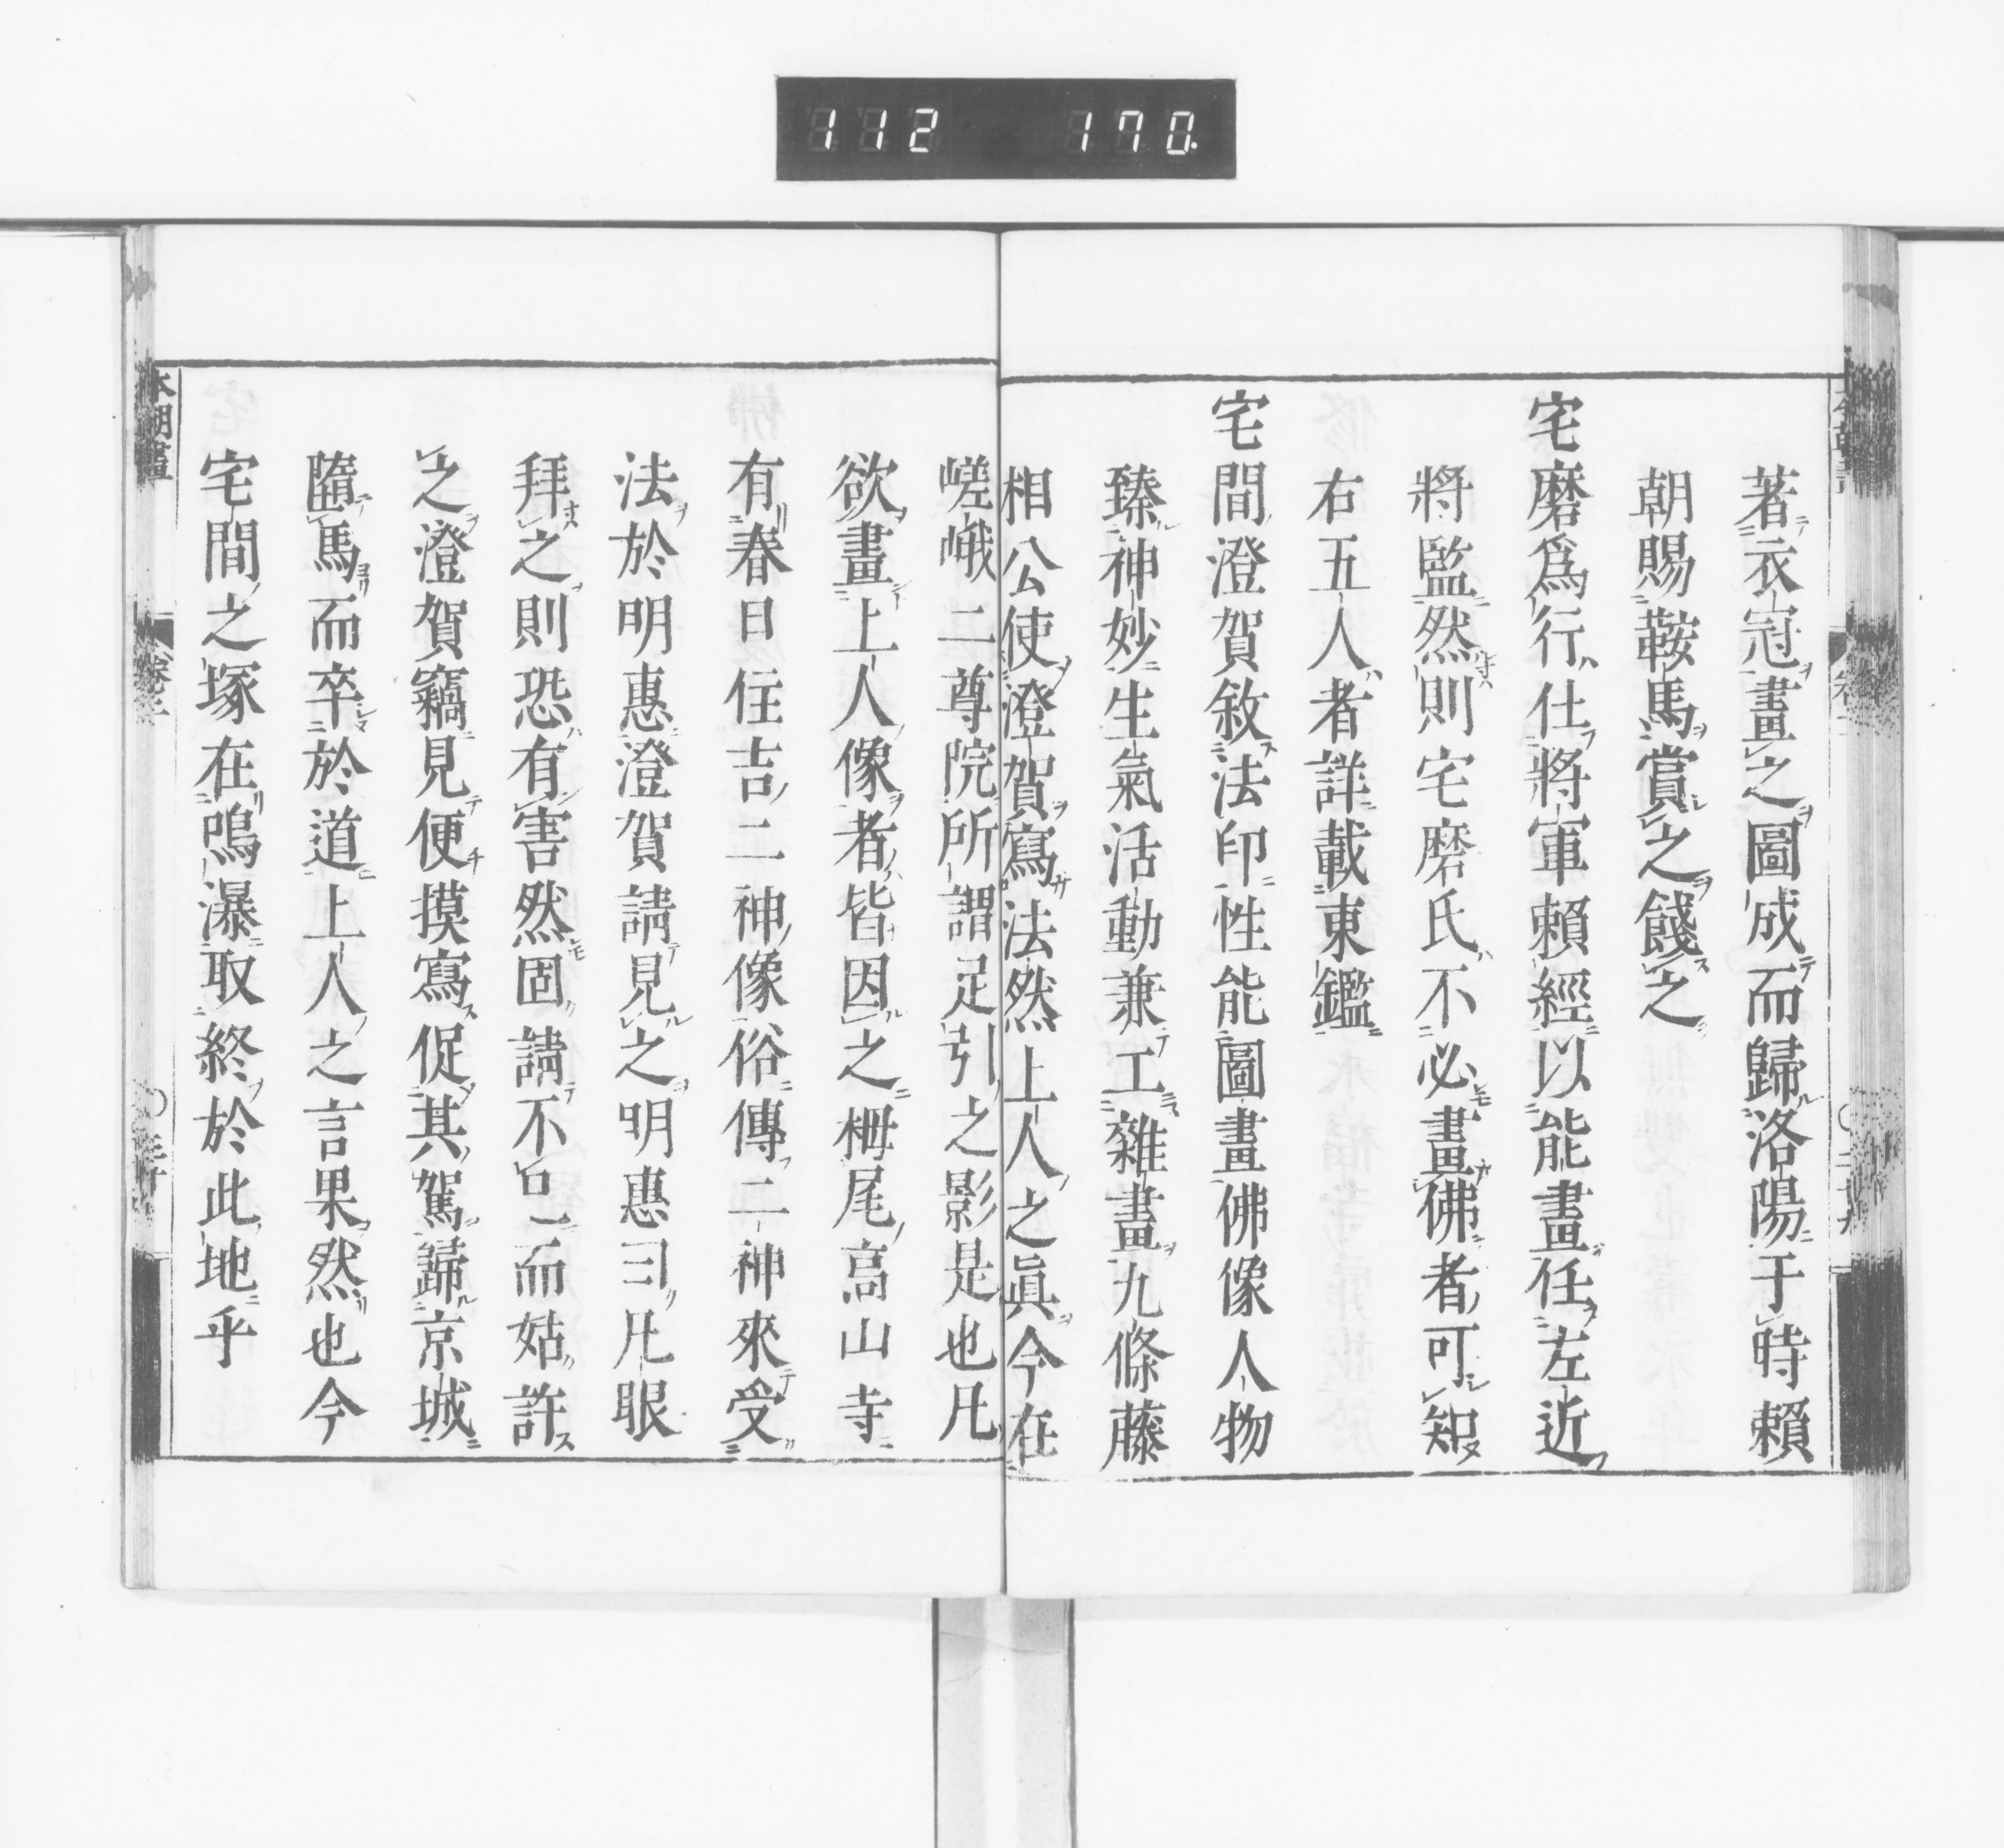 112 170.
著衣冠畫之圖成而歸洛陽于時賴
朝賜鞍馬賞之餞之
宅磨爲行仕將軍賴經以能畫任左近
將監然則宅磨氏不必畫佛者可知
右五人者詳載東鑑
宅間澄賀敘法印性能圖畫佛像人物
臻神妙生氣活動兼工雜畫九條藤
相公使澄賀寫法然上人之眞今在
嵯峨二尊院所謂足引之影是也凡
欲畫上人像者皆因之栂尾高山寺
有春日住吉二神像俗傳二神來受
法於明惠澄賀請見之明惠曰凡眼
拜之則恐有害然固請不已而姑許
之澄賀竊見便摸寫促其駕歸京城
墮馬而卒於道上人之言果然也今
宅間之塚在鳴瀑取終於此地乎
本朝畫